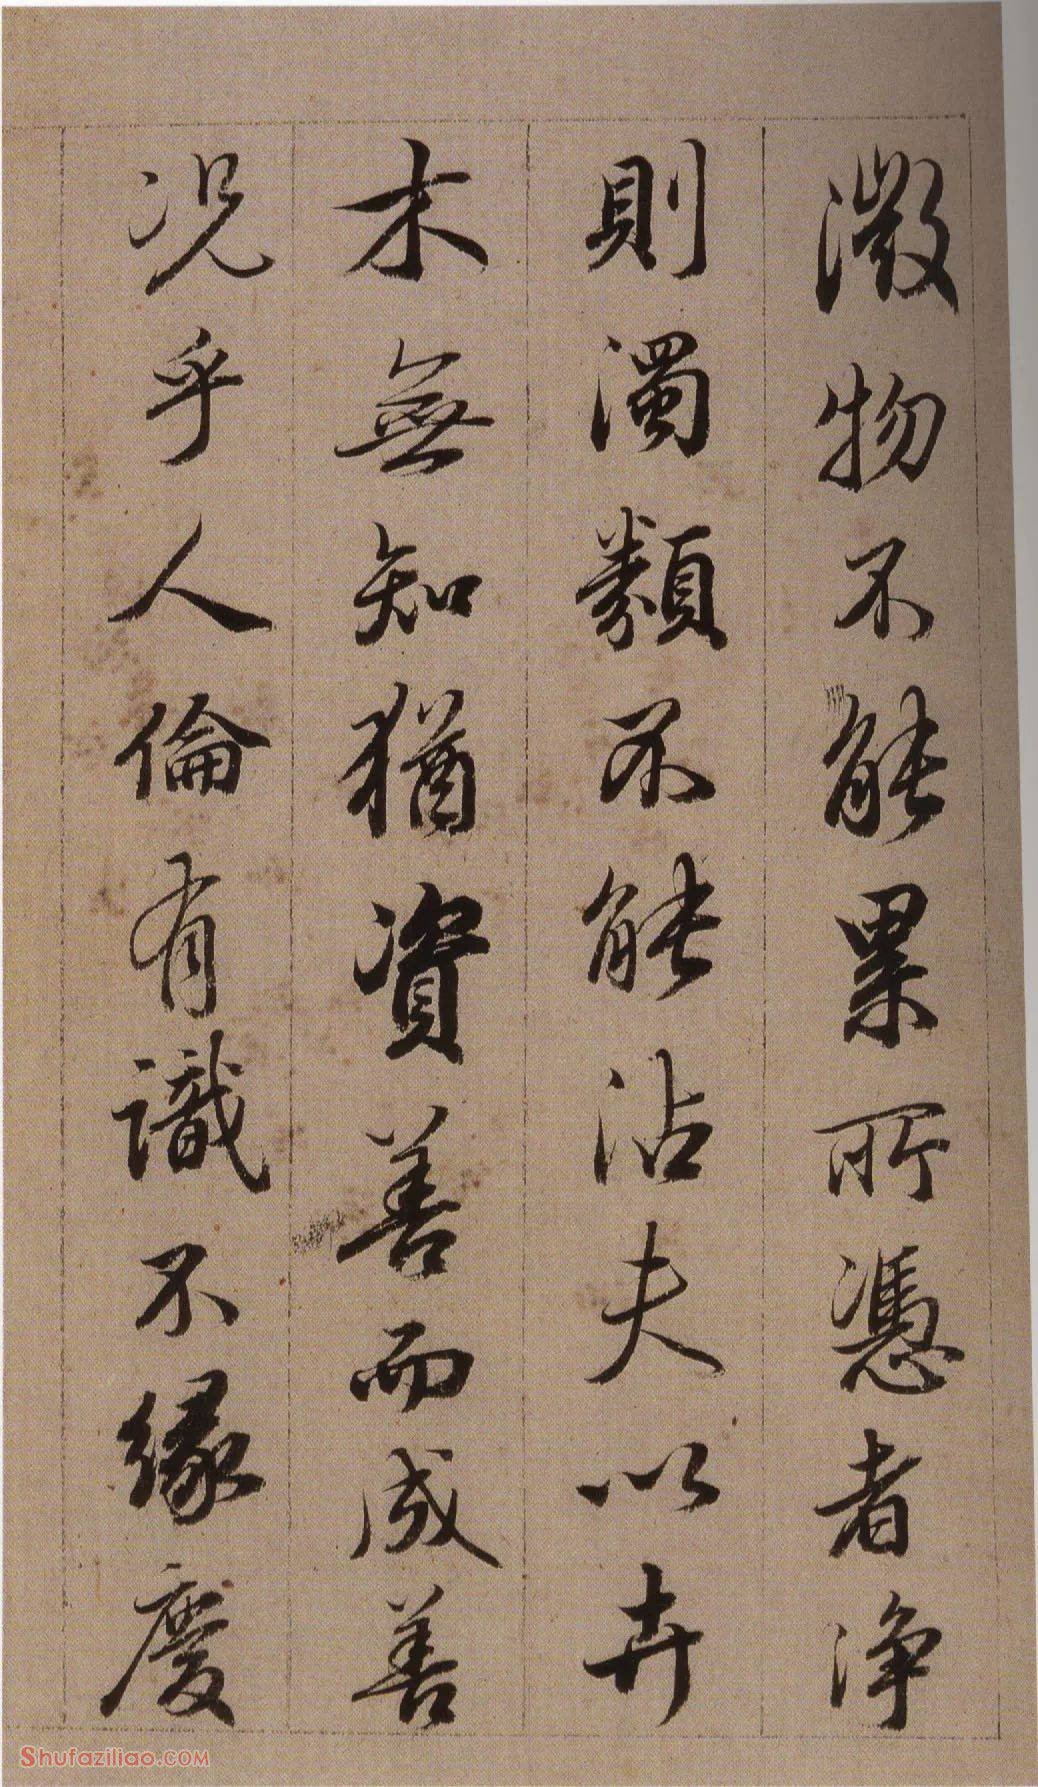 微物不能累所憑者淨
則濁類不能沾夫以卉
木無知猶資善而成善
况乎人倫有識不緣慶
Shufaziliao.COM